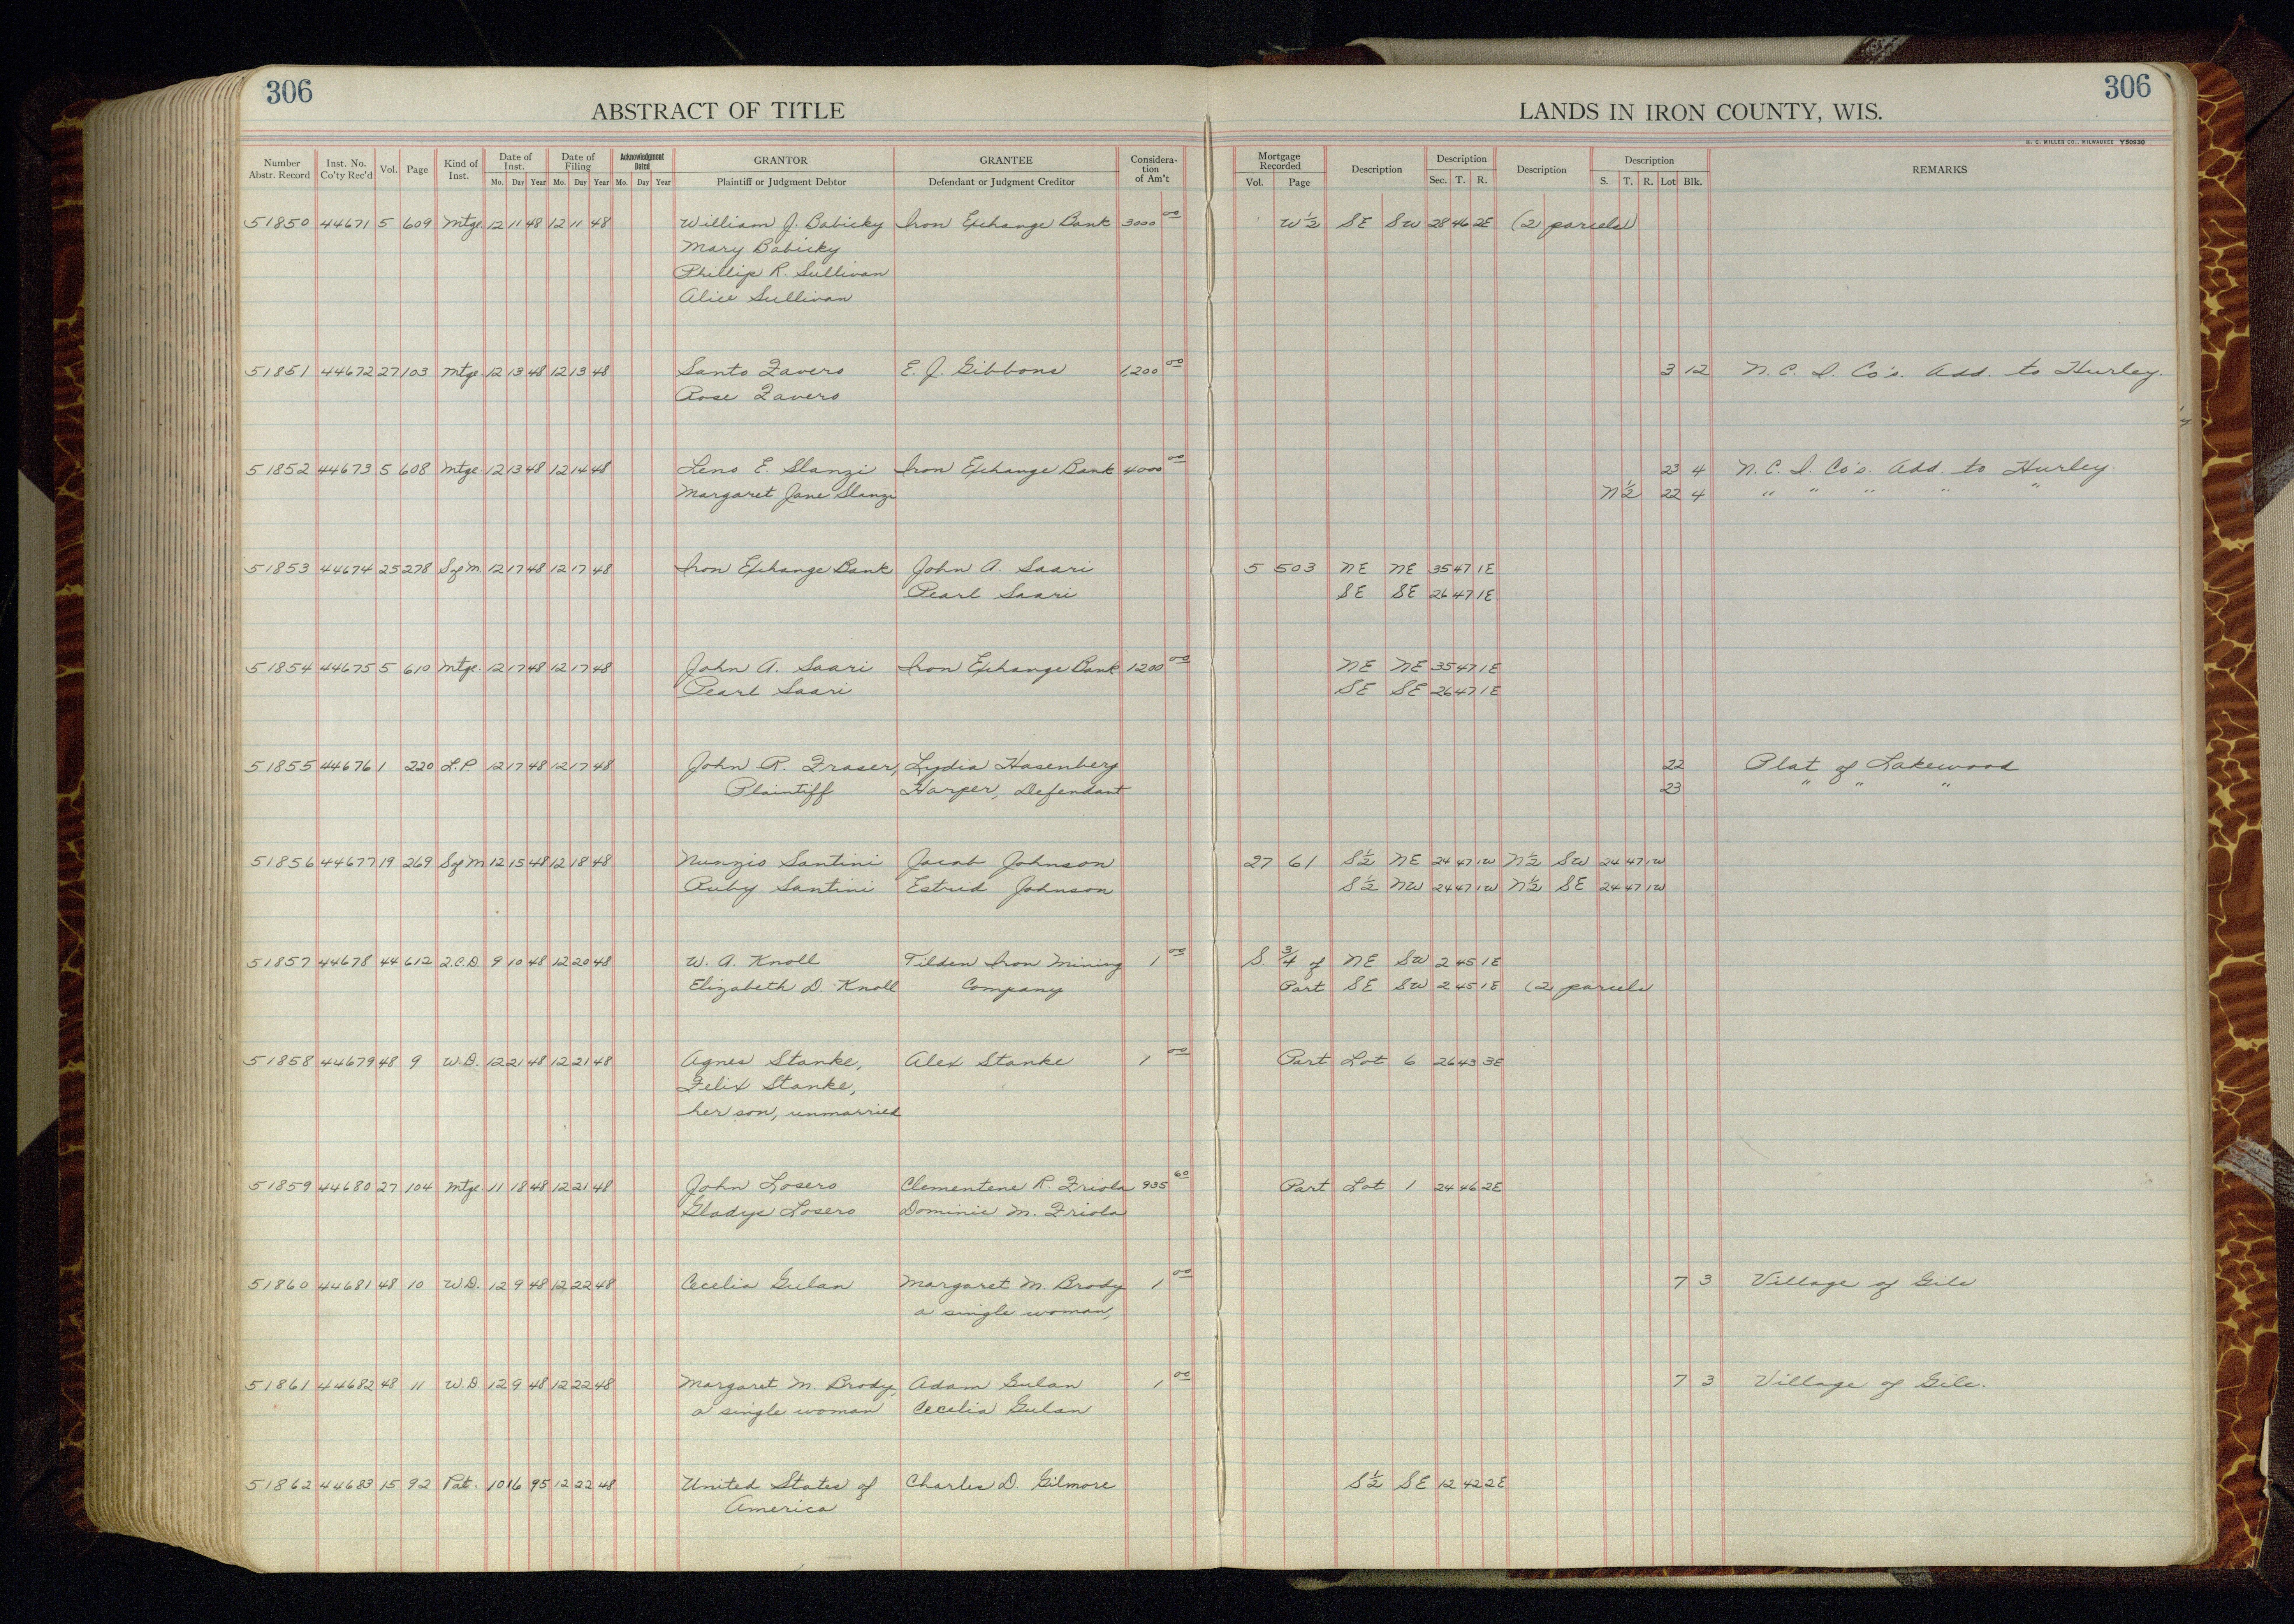 306
306
ABSTRACT OF TITLE
LANDS IN IRON COUNTY, WIS.
H. C. MILLER CO., MILWAUKEE Y50930
Number Abstr. Record Inst. No. Co'ty Rec'd Vol. Page Kind of Inst. Date of Inst. Mo. Day Year Date of Filing Mo. Day Year Acknowledgment Dated Mo. Day Year GRANTOR Plaintiff or Judgment Debtor GRANTEE Defendant or Judgment Creditor Considera-tion of Am't Mortgage Recorded Vol. Page Description Description Sec. T. R. Description Description S. T. R. Lot Blk. REMARKS
51850 44671 5 609 Mtge. 12 11 48 12 11 48 William J. Babicky Iron Exchange Bank 3000 00 W ½ SE SW 28 46 2E (2 parcels)
Mary Babicky
Phillip R. Sullivan
Alice Sullivan
51851 44672 27 103 Mtge. 12 13 48 12 13 48 Santo Favero E. J. Gibbons 1,200 00 3 12 N. C. I. Co's. Add. to Hurley.
Rose Favero
51852 44673 5 608 Mtge. 12 13 48 12 14 48 Leno E. Slanzi Iron Exchange Bank 4000 00 23 4 N. C. I. Co's. Add. to Hurley.
Margaret Jane Slanzi N ½ 22 4 " " " " "
51853 44674 25 278 S of M. 12 17 48 12 17 48 Iron Exchange Bank John A. Saari 5 503 NE NE 35 47 1E
Pearl Saari SE SE 26 47 1E
51854 44675 5 610 Mtge. 12 17 48 12 17 48 John A. Saari Iron Exchange Bank 1200 00 NE NE 35 47 1E
Pearl Saari SE SE 26 47 1E
51855 44676 1 220 L.P. 12 17 48 12 17 48 John R. Fraser, Lydia Hasenberg 22 Plat of Lakewood
Plaintiff Harper, Defendant 23 " " "
51856 44677 19 269 S of M 12 15 48 12 18 48 Nunzio Santini Jacob Johnson 27 61 S ½ NE 24 47 1W N ½ SW 24 47 1W
Ruby Santini Estrid Johnson S ½ NW 24 47 1W N ½ SE 24 47 1W
51857 44678 44 612 Q.C.D. 9 10 48 12 20 48 W. A. Knoll Tilden Iron Mining 1 00 S. ¾ of NE SW 2 45 1E
Elizabeth D. Knoll Company Part SE SW 2 45 1E (2 parcels
51858 44679 48 9 W.D. 12 21 48 12 21 48 Agnes Stanke, Alex Stanke 1 00 Part Lot 6 26 43 3E
Felix Stanke,
her son, unmarried
51859 44680 27 104 Mtge. 11 18 48 12 21 48 John Losero Clementene R. Friola 935 60 Part Lot 1 24 46 2E
Gladys Losero Dominic M. Friola
51860 44681 48 10 W.D. 12 9 48 12 22 48 Cecelia Gulan Margaret M. Brody 1 00 7 3 Village of Gile
a single woman,
51861 44682 48 11 W.D 12 9 48 12 22 48 Margaret M. Brody, Adam Gulan 1 00 7 3 Village of Gile.
a single woman Cecelia Gulan
51862 44683 15 92 Pat. 10 16 95 12 22 48 United States of Charles D. Gilmore S ½ SE 12 42 2E
America